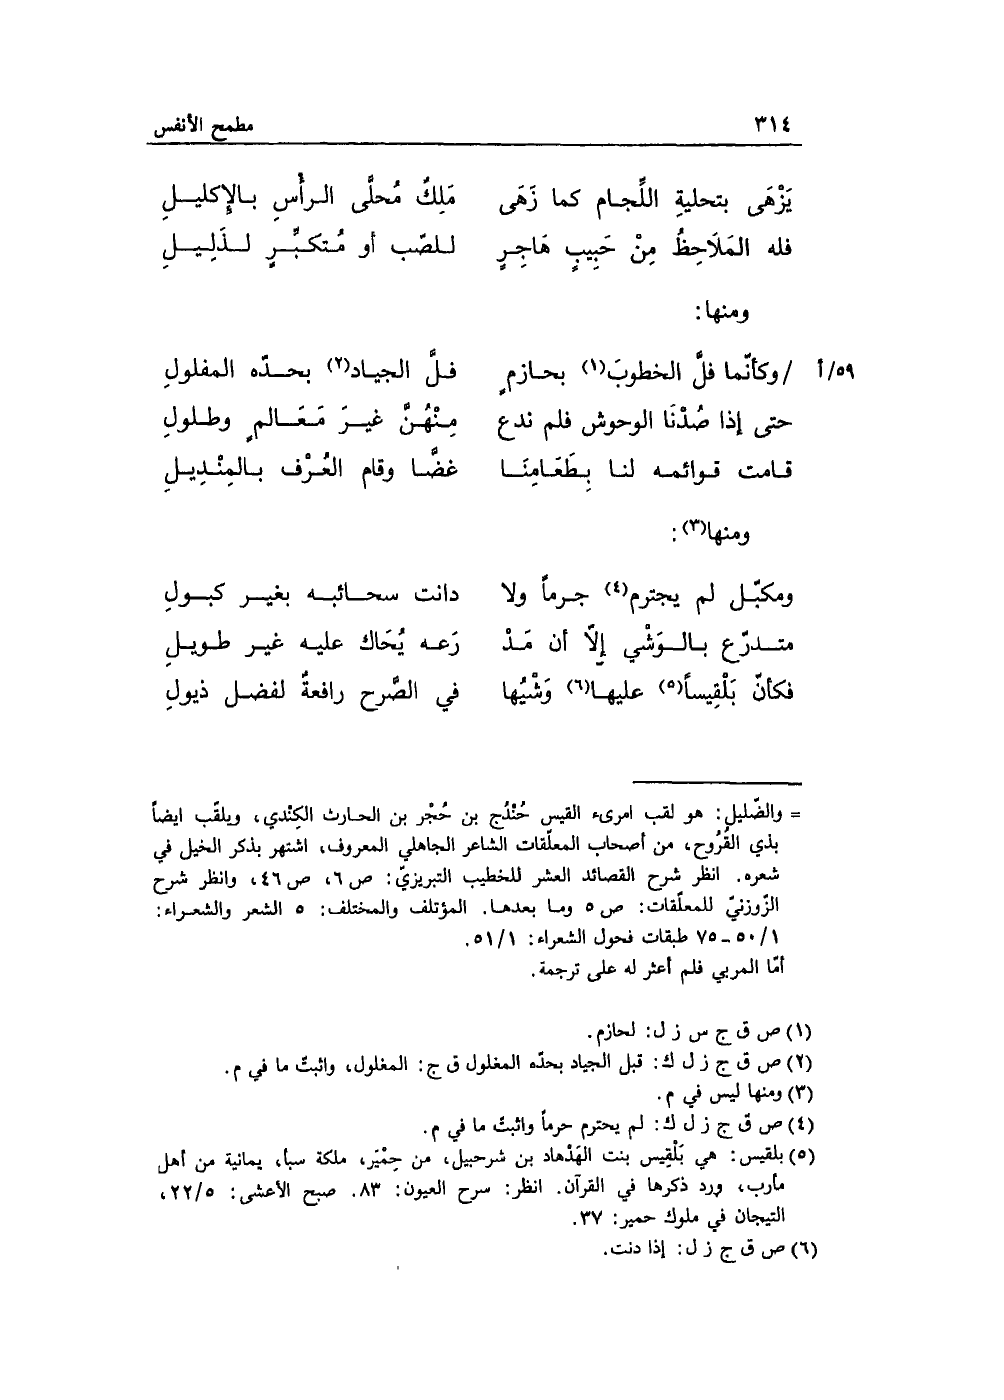 ٣١٤ مطمح الأنفس
يَزْهَى بتحليةِ اللِّجامِ كما زَهَى مَلِكٌ مُحلَّى الرأْسِ بالإِكليلِ
فله المَلَاحِظُ مِنْ حَبِيبٍ هَاجِرٍ للصّب أو مُتكبِّرٍ لذَلِيلِ
ومنها:
٥٩/أ /وكأنّما فلَّ الخطوبَ(١) بحازمٍ فلَّ الجياد(٢) بحدّه المفلولِ
حتى إذا صُدْنَا الوحوش فلم ندع مِنْهُنَّ غيرَ مَعَالمٍ وطلولِ
قامت قوائمه لنا بِطَعَامِنَا غضًّا وقام العُرْف بالمِنْدِيلِ
ومنها(٣):
ومكبّل لم يجترم(٤) جرماً ولا دانت سحائبه بغير كبولِ
متدرّع بالوَشْي إِلّا أن مَدْ رَعه يُحَاك عليه غير طويلِ
فكأنّ بَلْقِيساً(٥) عليها(٦) وَشْيُها في الصَّرح رافعةٌ لفضل ذيولِ
= والضّليل: هو لقب امرىء القيس حُنْدُج بن حُجْر بن الحارث الكِنْدي، ويلقّب ايضاً
بذي القُرُوح، من أصحاب المعلّقات الشاعر الجاهلي المعروف، اشتهر بذكر الخيل في
شعره. انظر شرح القصائد العشر للخطيب التبريزيّ: ص٦، ص٤٦، وانظر شرح
الزّوزنيّ للمعلّقات: ص٥ وما بعدها. المؤتلف والمختلف: ٥ الشعر والشعراء:
٥٠/١ ـ ٧٥ طبقات فحول الشعراء: ٥١/١.
أمّا المربي فلم أعثر له على ترجمة.
(١) ص ق ج س ز ل: لحازم.
(٢) ص ق ج ز ل ك: قبل الجياد بحدّه المغلول ق ج: المغلول، واثبتّ ما في م.
(٣) ومنها ليس في م.
(٤) ص ق ج ز ل ك: لم يحترم حرماً واثبتّ ما في م.
(٥) بلقيس: هي بَلْقِيس بنت الهَدْهاد بن شرحبيل، من حِمْيَر، ملكة سبأ، يمانية من أهل
مأرب، ورد ذكرها في القرآن. انظر: سرح العيون: ٨٣. صبح الأعشى: ٢٢/٥،
التيجان في ملوك حمير: ٣٧.
(٦) ص ق ج ز ل: إذا دنت.